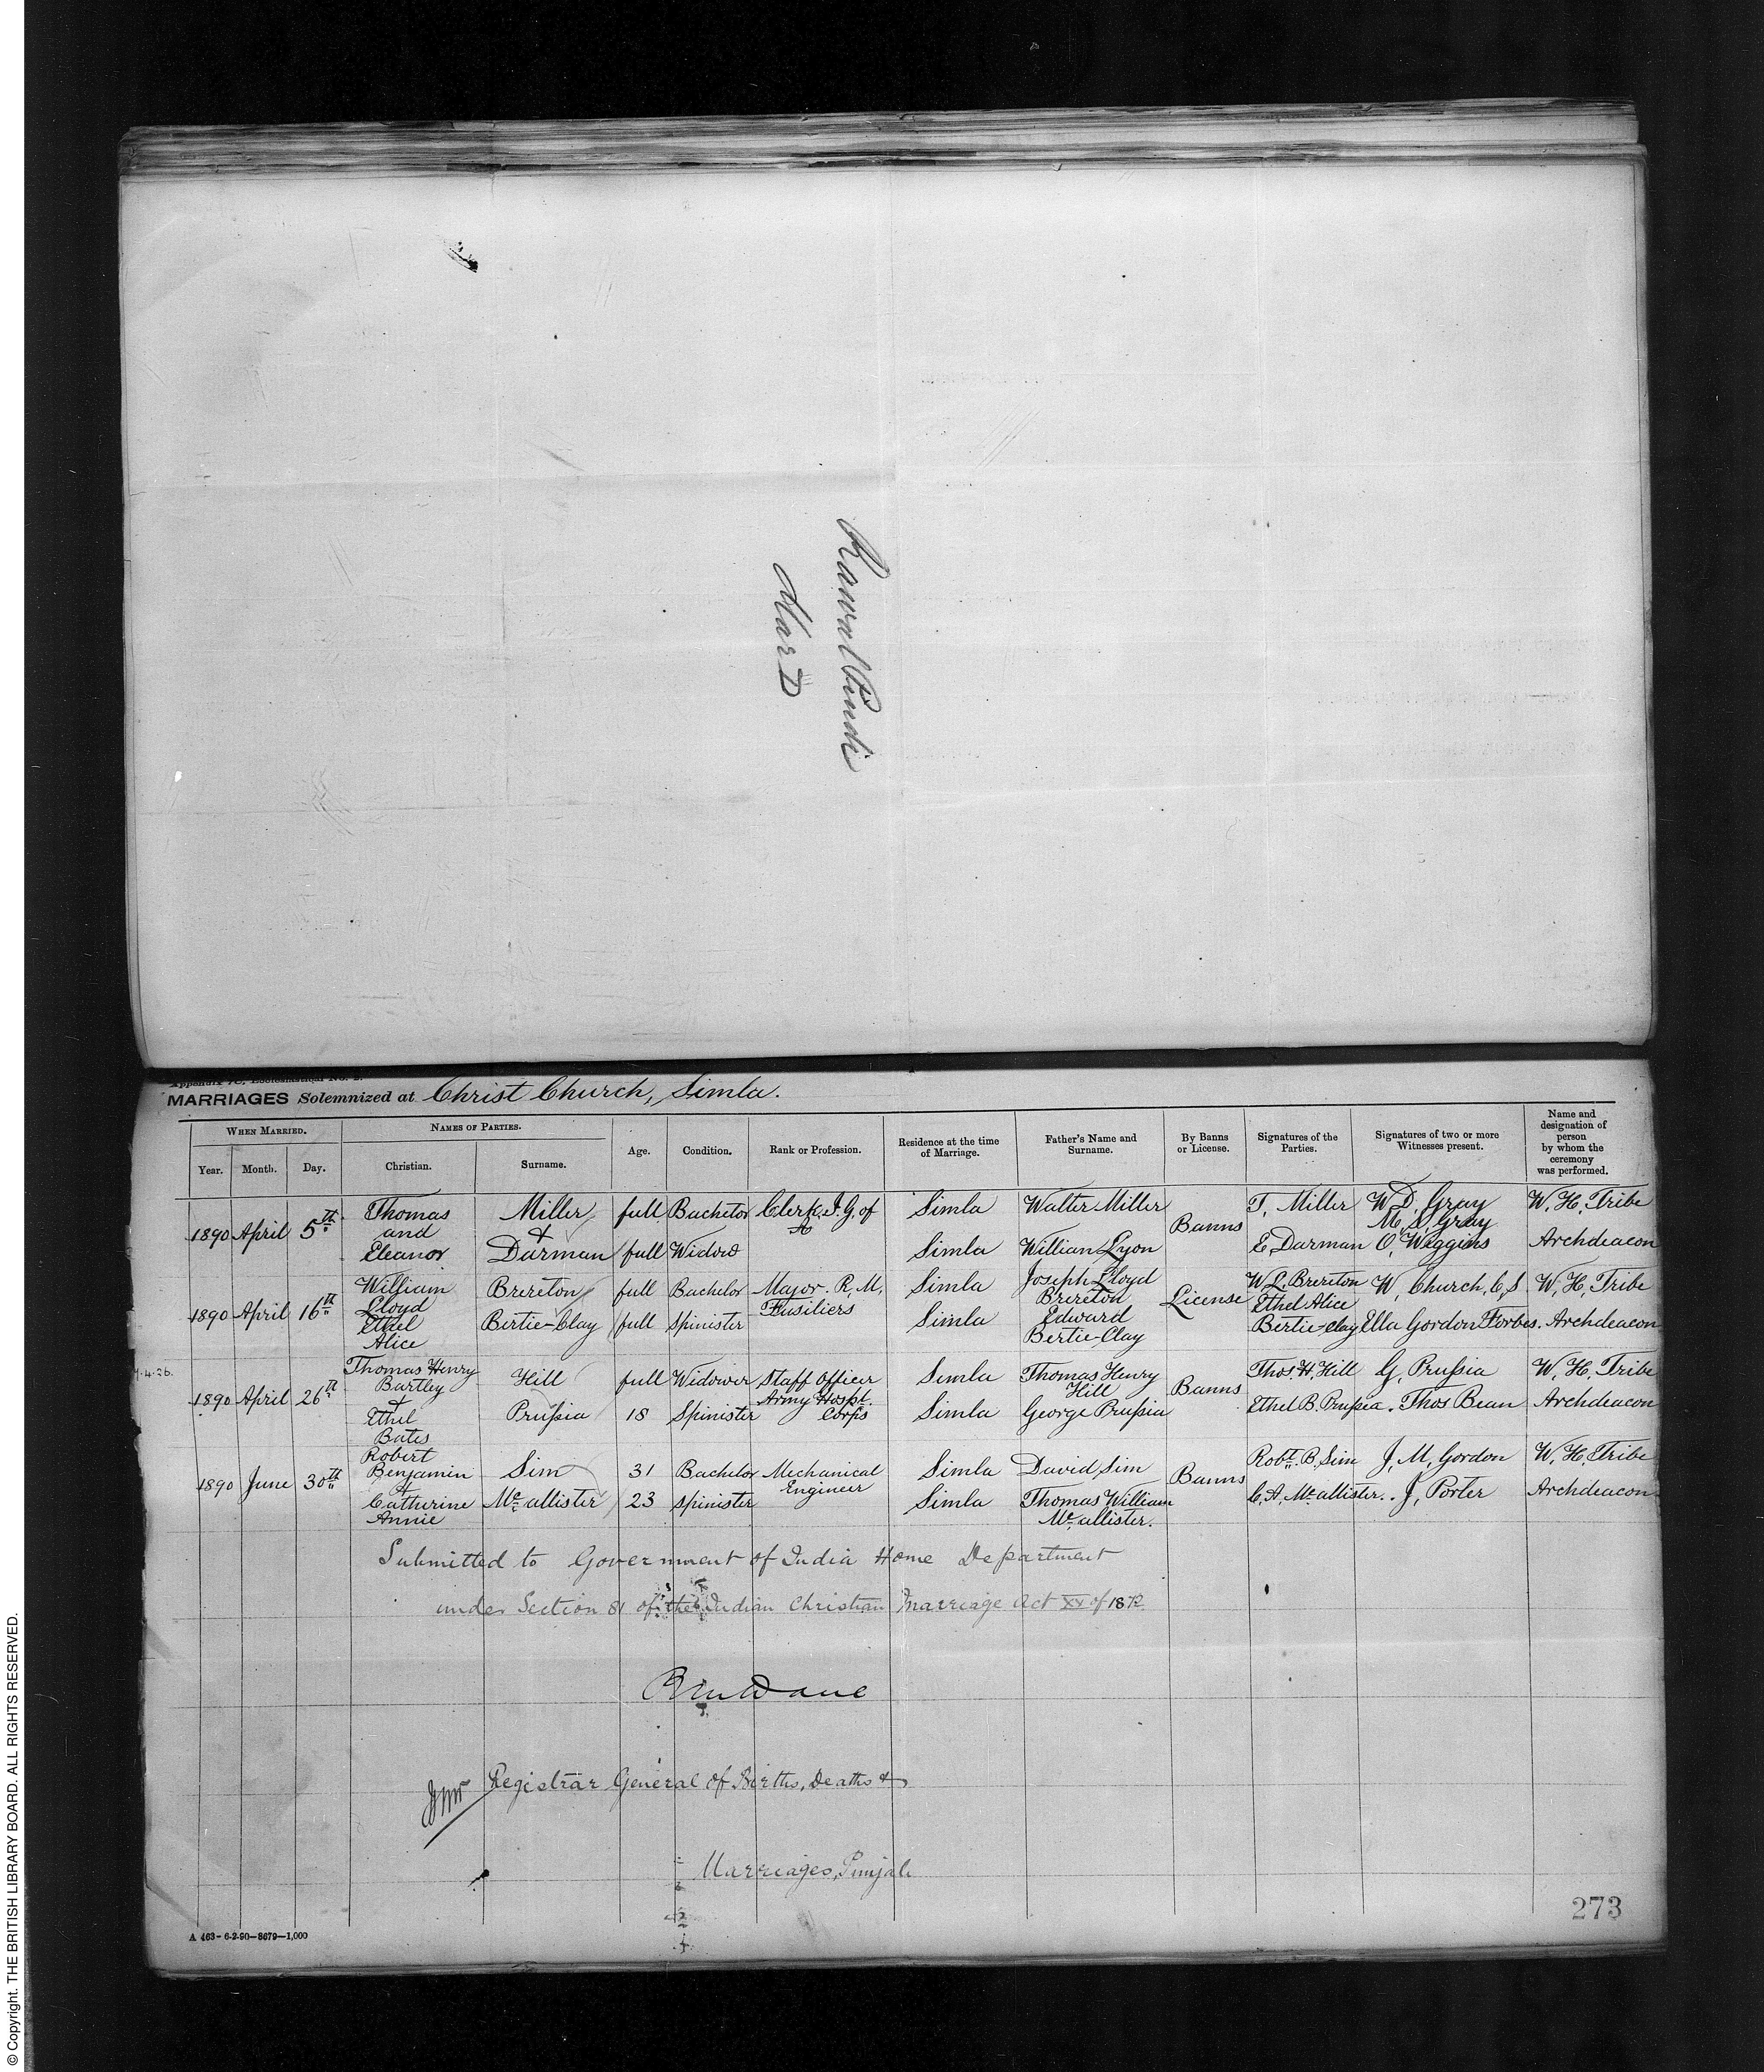 Rawal Pindi
Mar D
Appendix 7C, Ecclesiastical No. 2.
MARRIAGES Solemnized at Christ Church, Simla.
WHEN MARRIED. NAMES OF PARTIES. Age. Condition. Rank or Profession. Residence at the time of Marriage. Father's Name and Surname. By Banns or License. Signatures of the Parties. Signatures of two or more Witnesses present. Name and designation of person by whom the ceremony was performed.
Year. Month. Day. Christian. Surname.
Thomas Miller full Bachelor Clerk I.G. of Simla Walter Miller T. Miller W. D. Gray W. H. Tribe
1890 April 5th and & Banns M. S. Gray
Eleanor Darman full Widow Simla William Lyon E. Darman O. Wiggins Archdeacon
William Brereton full Bachelor Major. R. M. Simla Joseph Lloyd W L. Brereton W. Church, C S W. H. Tribe
1890 April 16th Lloyd Fusiliers Brereton License Ethel Alice
Ethel Bertie-Clay full Spinister Simla Edward Bertie-Clay Ella Gordon Forbes. Archdeacon
Alice Bertie-Clay
4.26.
Thomas Henry Hill full Widower Staff Officer Simla Thomas Henry Thos. H. Hill G. Prussia W. H. Tribe
1890 April 26th Bartley Army Hospt. Hill Banns
& Corps
Ethel Prussia 18 Spinister Simla George Prussia Ethel B. Prussia. Thos Bean Archdeacon
Bates
Robert
1890 June 30th Benjamin Sim 31 Bachelor Mechanical Simla David Sim Banns Robt. B. Sim J. M. Gordon W. H. Tribe
& Engineer
Catherine Mcallister 23 Spinister Simla Thomas William C. A. Mcallister. J. Porter Archdeacon
Annie Mcallister.
Submitted to Government of India Home Department
under Section 81 of the Indian Christian Marriage Act XV of 1872.
Registrar General of Births, Deaths &
Marriages, Punjab
273
A 463-6-2-90-8679-1,000
© Copyright. THE BRITISH LIBRARY BOARD. ALL RIGHTS RESERVED.